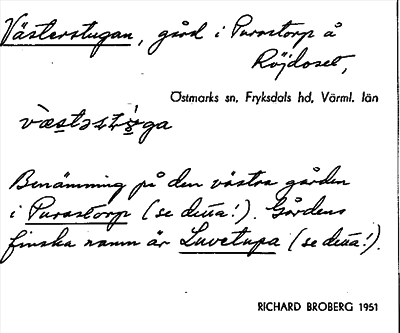 Västerstugan, gård i Purastorp å
Röjdoset,
Östmarks sn, Fryksdals hd, Värml. län
Benämning på den västra gården
i Purastorp (se detta!). Gårdens
finska namn är Luvetupa (se detta!).
RICHARD BROBERG 1951